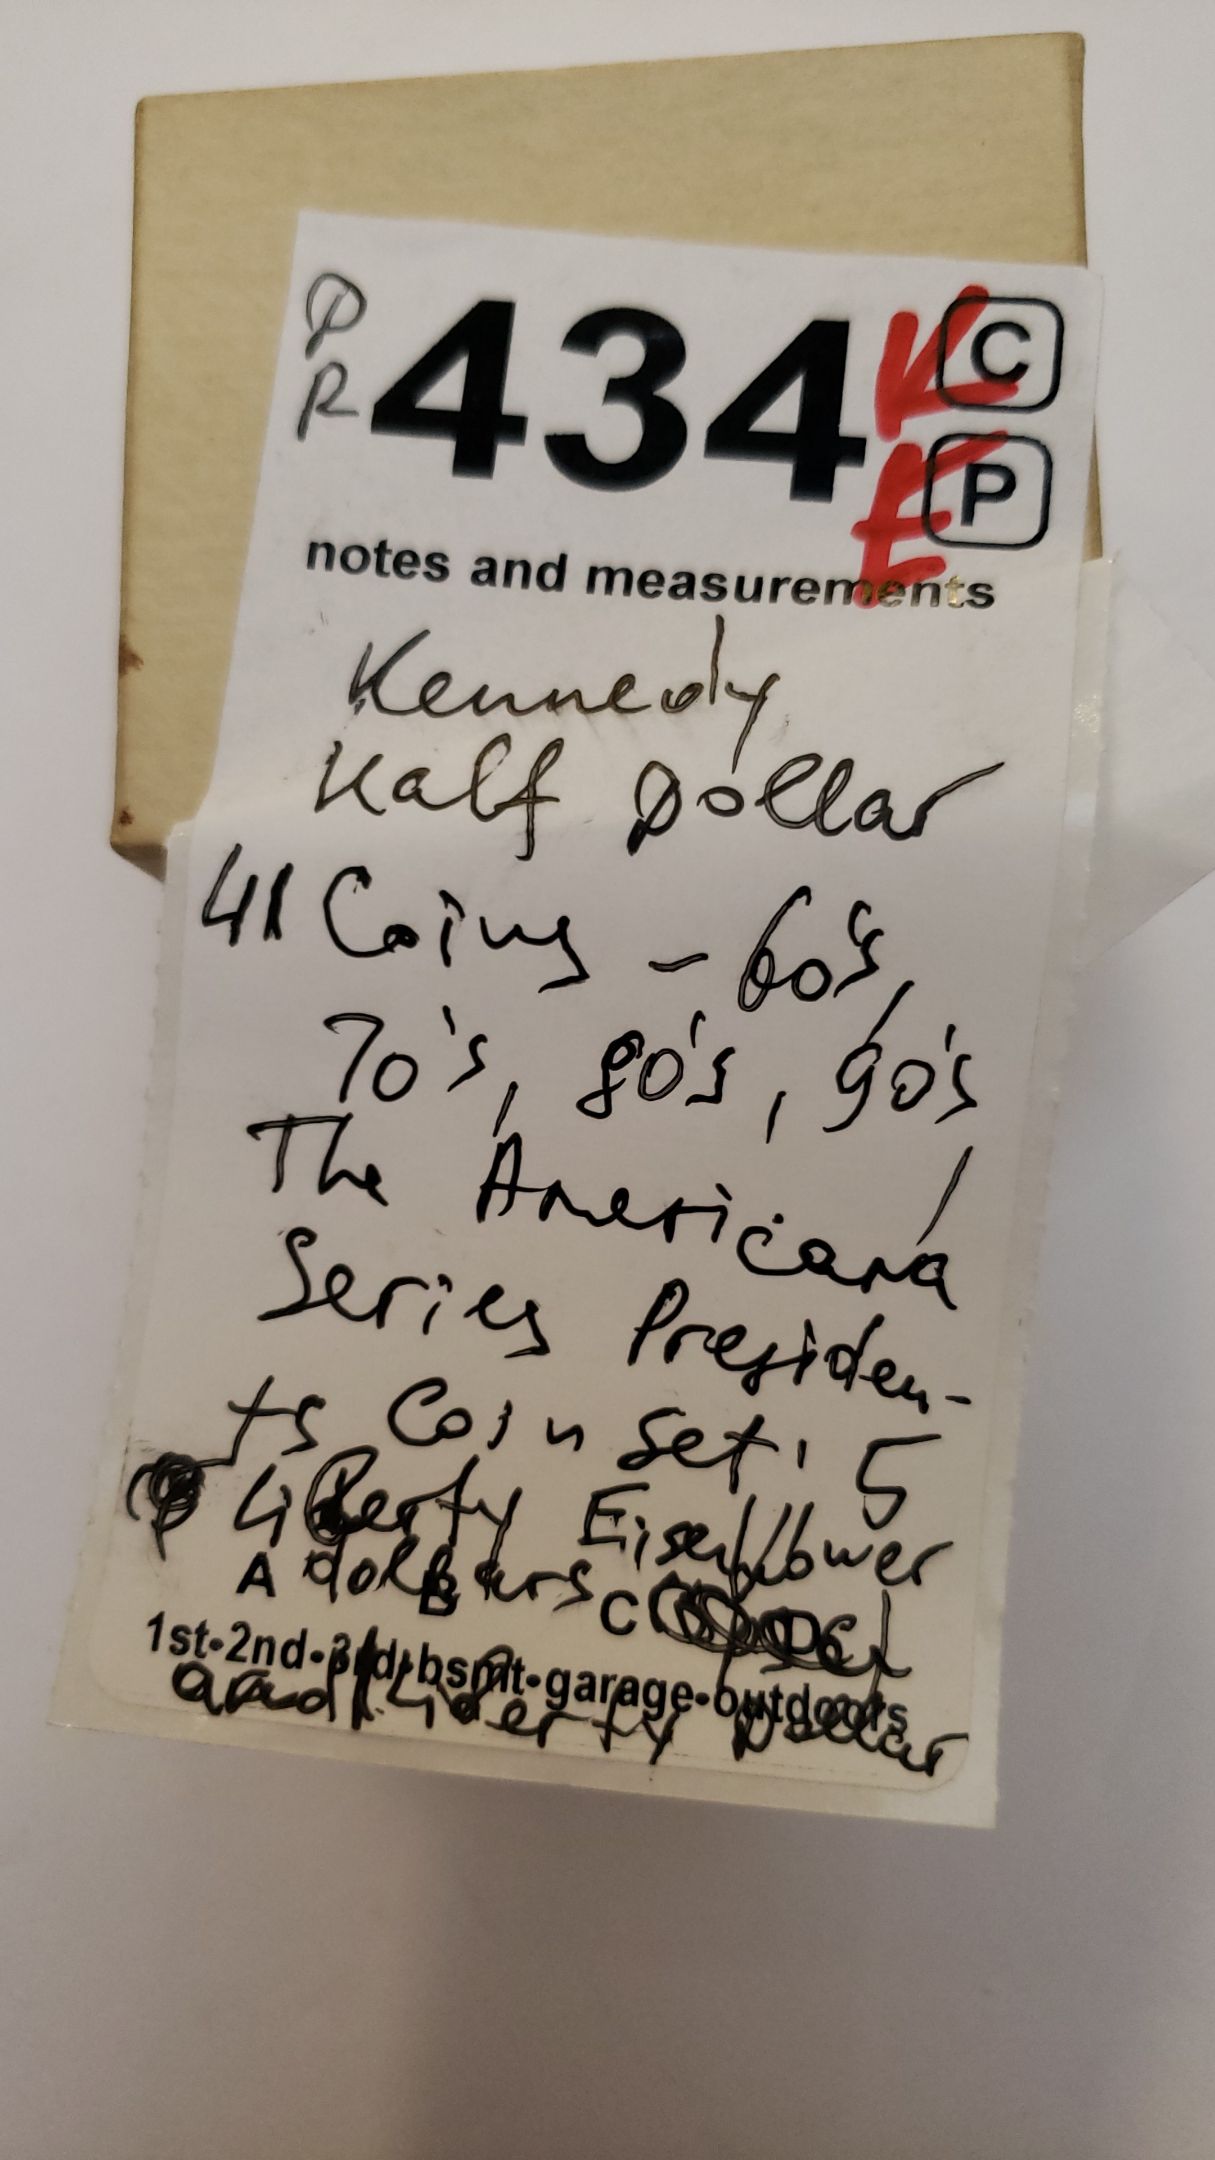 PR 434 K C
E P
notes and measurements
Kennedy
Half Dollar
41 Coins - 60's,
70's, 80's, 90's
The Americana
Series Presiden-
ts Coin Set, 5
Liberty Eisenhower
A dollars B C D
1st•2nd•3rd•bsmt•garage•outdoors
and Liberty Dollar